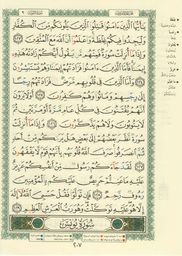 يَٰٓأَيُّهَا ٱلَّذِينَ ءَامَنُواْ قَٰتِلُواْ ٱلَّذِينَ يَلُونَكُم مِّنَ ٱلۡكُفَّارِ
وَلۡيَجِدُواْ فِيكُمۡ غِلۡظَةٗۚ وَٱعۡلَمُوٓاْ أَنَّ ٱللَّهَ مَعَ ٱلۡمُتَّقِينَ ١٢٣
وَإِذَا مَآ أُنزِلَتۡ سُورَةٞ فَمِنۡهُم مَّن يَقُولُ أَيُّكُمۡ زَادَتۡهُ هَٰذِهِۦٓ
إِيمَٰنٗاۚ فَأَمَّا ٱلَّذِينَ ءَامَنُواْ فَزَادَتۡهُمۡ إِيمَٰنٗا وَهُمۡ يَسۡتَبۡشِرُونَ
١٢٤ وَأَمَّا ٱلَّذِينَ فِي قُلُوبِهِم مَّرَضٞ فَزَادَتۡهُمۡ رِجۡسًا إِلَىٰ
رِجۡسِهِمۡ وَمَاتُواْ وَهُمۡ كَٰفِرُونَ ١٢٥ أَوَلَا يَرَوۡنَ أَنَّهُمۡ
يُفۡتَنُونَ فِي كُلِّ عَامٖ مَّرَّةً أَوۡ مَرَّتَيۡنِ ثُمَّ
لَا يَتُوبُونَ وَلَا هُمۡ يَذَّكَّرُونَ ١٢٦ وَإِذَا مَآ أُنزِلَتۡ
سُورَةٞ نَّظَرَ بَعۡضُهُمۡ إِلَىٰ بَعۡضٍ هَلۡ يَرَىٰكُم مِّنۡ أَحَدٖ
ثُمَّ ٱنصَرَفُواْۚ صَرَفَ ٱللَّهُ قُلُوبَهُم بِأَنَّهُمۡ قَوۡمٞ لَّا يَفۡقَهُونَ
١٢٧ لَقَدۡ جَآءَكُمۡ رَسُولٞ مِّنۡ أَنفُسِكُمۡ عَزِيزٌ
عَلَيۡهِ مَا عَنِتُّمۡ حَرِيصٌ عَلَيۡكُم بِٱلۡمُؤۡمِنِينَ
رَءُوفٞ رَّحِيمٞ ١٢٨ فَإِن تَوَلَّوۡاْ فَقُلۡ حَسۡبِيَ ٱللَّهُ لَآ إِلَٰهَ
إِلَّا هُوَۖ عَلَيۡهِ تَوَكَّلۡتُۖ وَهُوَ رَبُّ ٱلۡعَرۡشِ ٱلۡعَظِيمِ ١٢٩
سُورَةُ يُونُسَ
٢٠٧